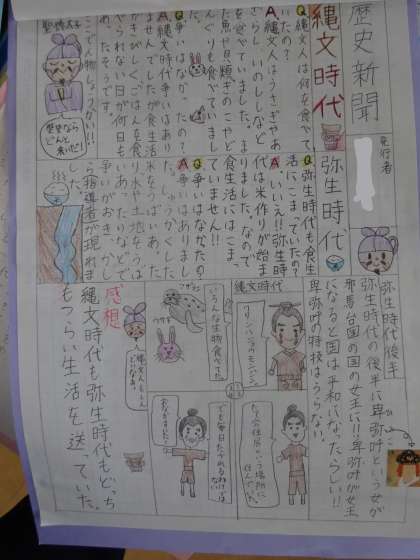 歴史新聞
発行者
縄文時代
Q縄文人は何を食べて
いたの?
A縄文人はうさぎやあ
ざらし、いのししなど
を食べていました。
た魚や貝類きのこやど
んぐりも食べていました。
Q争いはなかったの?
A縄文時代争いはあり
ませんでしたが食生活
がきびしくごはんを食
べられない日が何日も
聖徳太子
歴史なら
どんと
来いだ!!
弥生時代
Q弥生時代も食生
活にこまっていたの?
Aいいえ!!弥生時
代は米作りが始ま
りました。なので
食生活にはこまっ
ていません!!
Q争いはなかったの?
A争いはありまし
た。しゅうかくした
米をうばいあった
り水や土地をうば
いあったりなどで
争いがおき
ら指導者が現れま
した。
弥生時代後半
弥生時代の後半に卑弥呼という女が
邪馬台国の国の女王に!!卑弥呼が女王
になると国は平和になったらしい!!
卑弥呼の特技はうらない。
縄文時代
たて穴住居という場所に
住んでいた。
いろんな生物食べてた。
ウサギ
でも毎日たべれるわけ
感想
縄文時代も弥生時代もどっち
もつらい生活を送っていた。